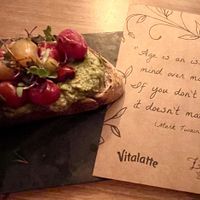 "Age is an is
mind over ma
If you don't
it doesn't ma
(Mark Twain
Vitalatte